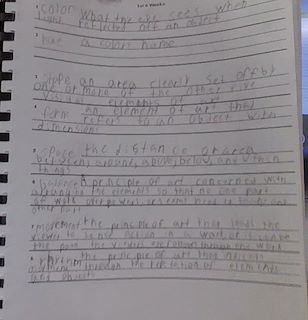 color what the eye sees when
light reflected off an object
hue a colors name
shape an area clearly set off by
one or more of the other five
visual elements of art
form an element of art that
refers to an object with
dimensions
space the distance or area
between, around, above, below, and within
things
balance a principle of art concerned with
elements so that no one part
of work overpowers or seems heavier than any
other part
movement the principle of art that leads the
viewer to sense action in a work
the path the viewers eye through the work
rhythm the principle of art that indicates
movement through the repetition of elements
and objects